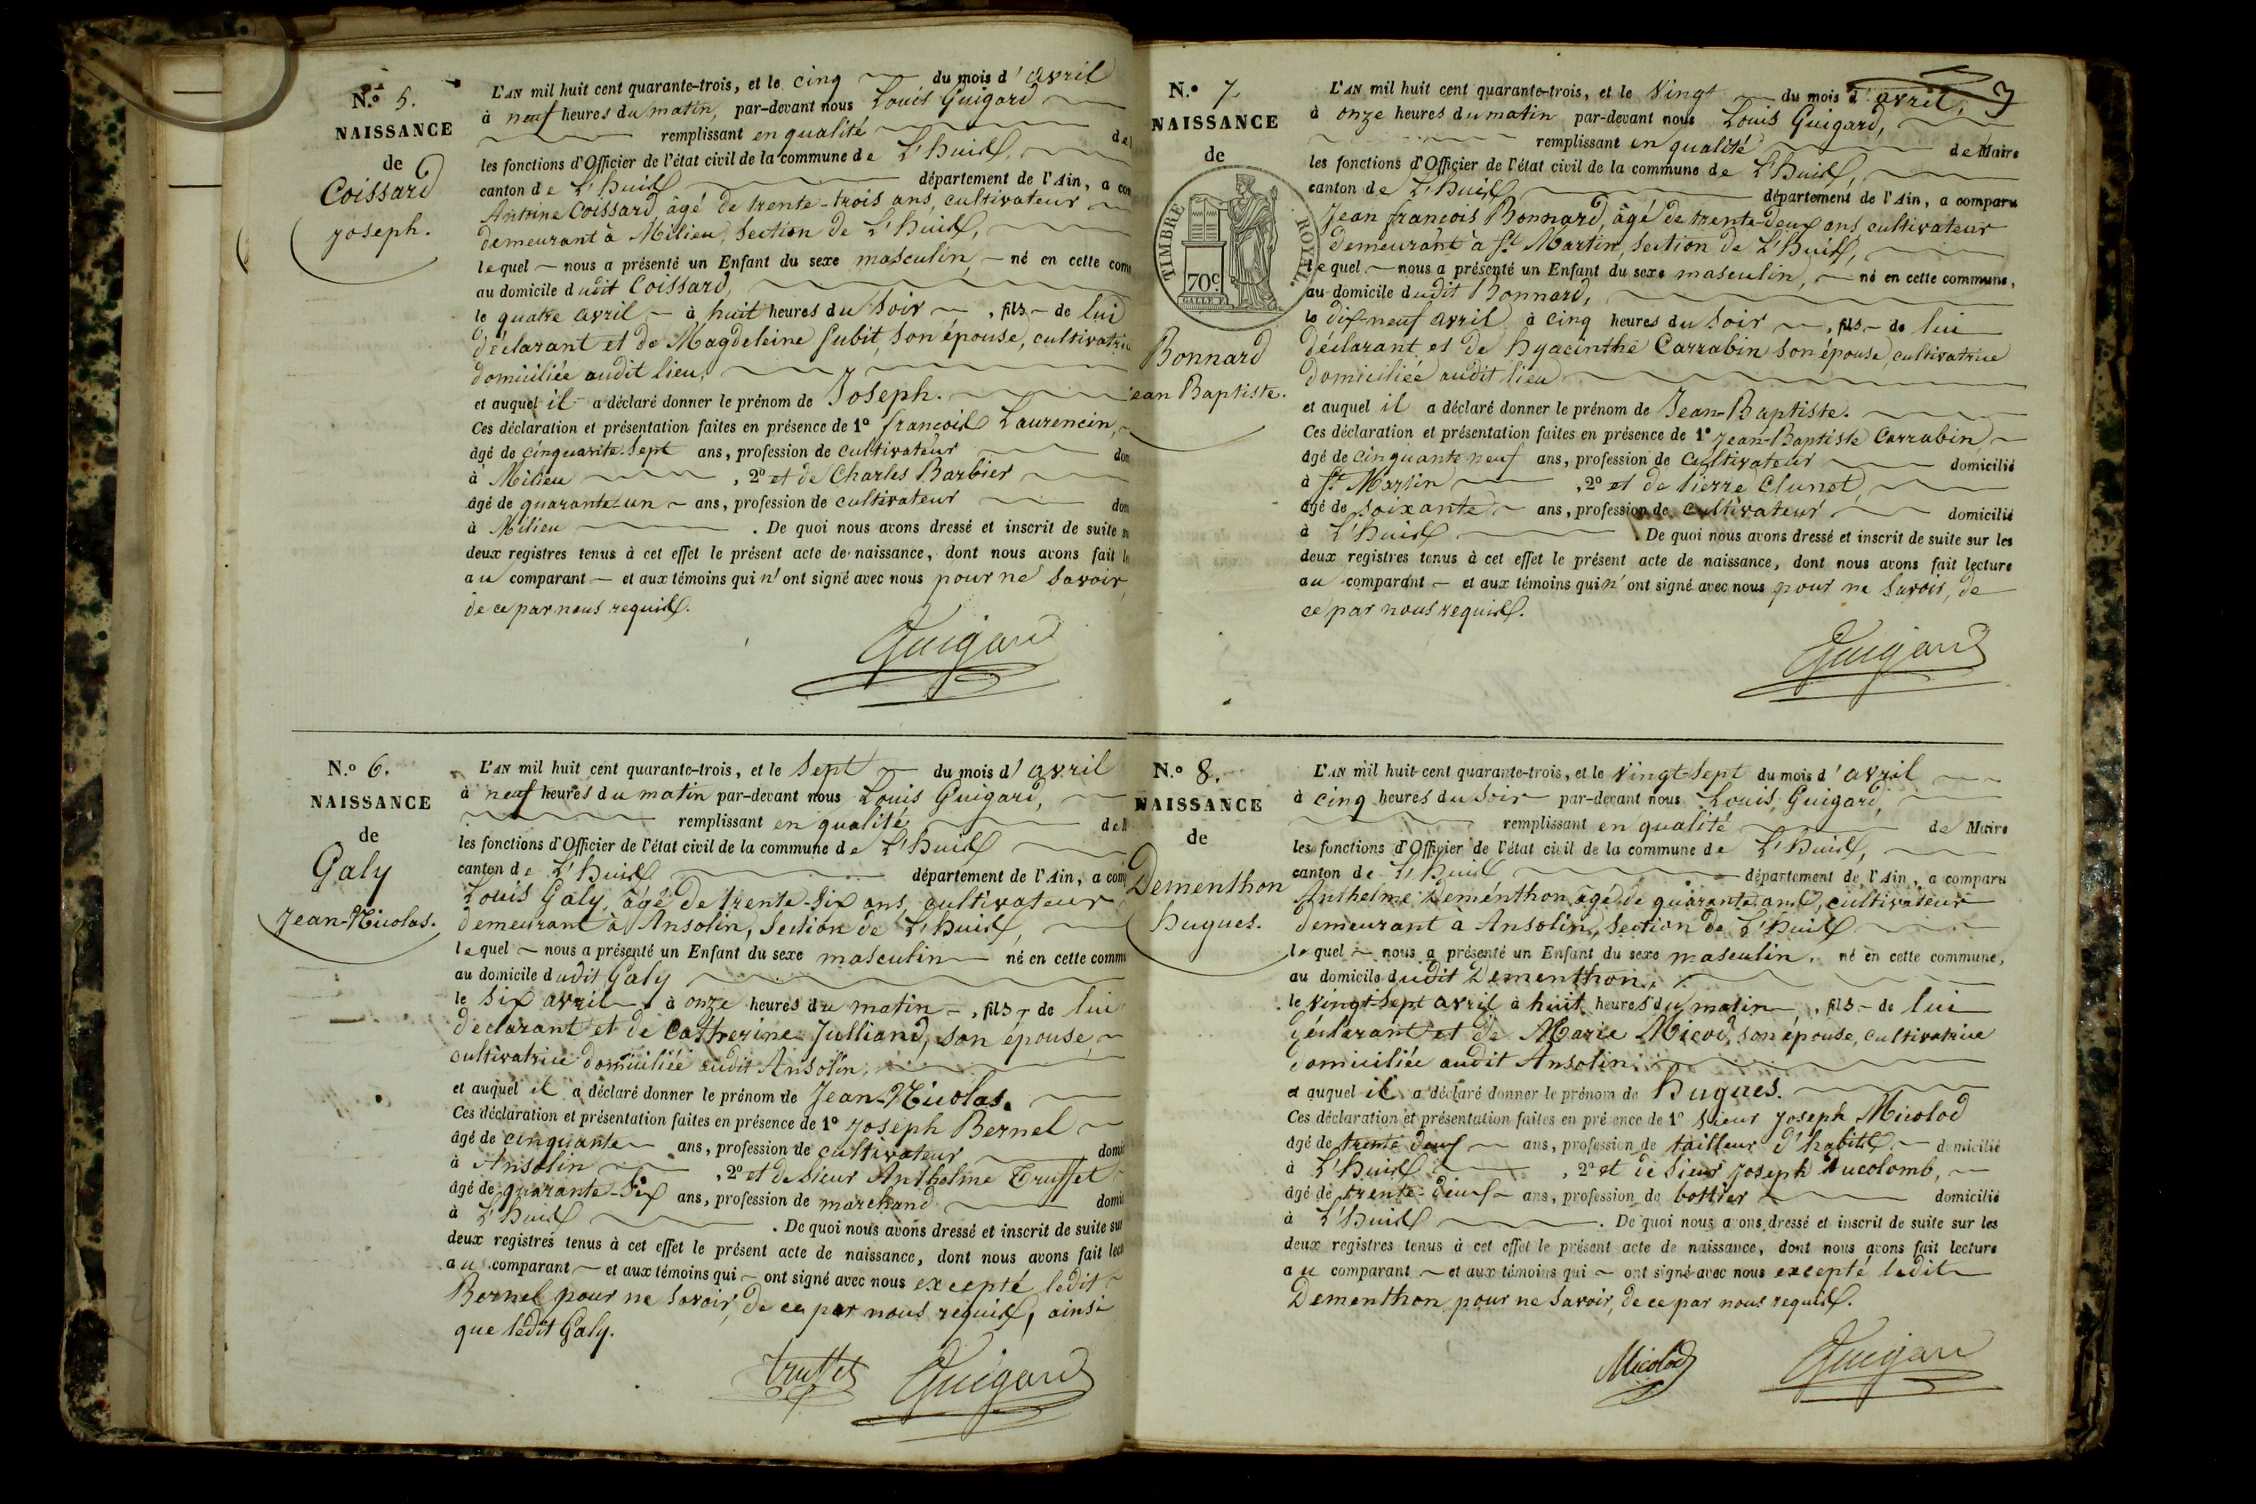 N.º 5.
NAISSANCE
de
Coissard
Joseph.
L'AN mil huit cent quarante-trois, et le cinq du mois d'avril
à neuf heures du matin, par-devant nous Louis Guigard
remplissant en qualité de
les fonctions d'Officier de l'état civil de la commune de L'huis,
canton de L'huis département de l'Ain, a com
Antoine Coissard, âgé de trente-trois ans, cultivateur
demeurant à Milieu, Section de L'huis,
lequel nous a présenté un Enfant du sexe masculin, né en cette com
au domicile dudit Coissard,
le quatre avril à huit heures du soir, fils de lui
déclarant et de Magdeleine Subit, son épouse, cultivatrice
domiciliée audit lieu,
et auquel il a déclaré donner le prénom de Joseph.
Ces déclaration et présentation faites en présence de 1º françois Laurencin,
âgé de cinquante-sept ans, profession de cultivateur dom
à Milieu, 2º et de Charles Barbier
âgé de quarante-un ans, profession de cultivateur dom
à Milieu. De quoi nous avons dressé et inscrit de suite su
deux registres tenus à cet effet le présent acte de naissance, dont nous avons fait le
au comparant et aux témoins qui n'ont signé avec nous pour ne savoir,
de ce par nous requis.
Guigard
N.º 6.
NAISSANCE
de
Galy
Jean-Nicolas.
L'AN mil huit cent quarante-trois, et le sept du mois d'avril
à neuf heures du matin par-devant nous Louis Guigard,
remplissant en qualité de M
les fonctions d'Officier de l'état civil de la commune de L'huis
canton de L'huis département de l'Ain, a comp
Louis Galy, âgé de trente-six ans, cultivateur
demeurant à Ansolin, Section de L'huis,
lequel nous a présenté un Enfant du sexe masculin né en cette commu
au domicile dudit Galy
le six avril à onze heures du matin, fils de lui
déclarant et de Catherine Julliand, son épouse,
cultivatrice domiciliée audit Ansolin,
et auquel il a déclaré donner le prénom de Jean-Nicolas.
Ces déclaration et présentation faites en présence de 1º Joseph Bernel
âgé de cinquante ans, profession de cultivateur domi
à Ansolin, 2º et de sieur Anthelme Truffet
âgé de quarante-six ans, profession de marchand domi
à L'huis. De quoi nous avons dressé et inscrit de suite sur
deux registres tenus à cet effet le présent acte de naissance, dont nous avons fait lect
au comparant et aux témoins qui ont signé avec nous excepté ledit
Bernel pour ne savoir, de ce par nous requis, ainsi
que ledit Galy.
Truffet Guigard
3
N.º 7.
NAISSANCE
de
TIMBRE ROYAL.
70c
GALLE F.
Bonnard
Jean Baptiste.
L'AN mil huit cent quarante-trois, et le vingt du mois d'avril,
à onze heures du matin par-devant nous Louis Guigard,
remplissant en qualité de Maire
les fonctions d'Officier de l'état civil de la commune de L'huis,
canton de L'huis, département de l'Ain, a comparu
Jean françois Bonnard, âgé de trente-deux ans cultivateur
demeurant à St Martin, Section de L'huis,
lequel nous a présenté un Enfant du sexe masculin, né en cette commune,
au domicile dudit Bonnard,
le dix neuf avril à cinq heures du soir, fils de lui
déclarant et de hyacinthe Carrabin son épouse, cultivatrice
domiciliée audit lieu
et auquel il a déclaré donner le prénom de Jean-Baptiste.
Ces déclaration et présentation faites en présence de 1º Jean-Baptiste Carrabin,
âgé de cinquante neuf ans, profession de cultivateur domicilié
à St Martin, 2º et de Pierre Clunet,
âgé de soixante ans, profession de cultivateur domicilié
à L'huis. De quoi nous avons dressé et inscrit de suite sur les
deux registres tenus à cet effet le présent acte de naissance, dont nous avons fait lecture
au comparant et aux témoins qui n'ont signé avec nous pour ne savoir, de
ce par nous requis.
Guigard
N.º 8.
NAISSANCE
de
Dementhon
hugues.
L'AN mil huit cent quarante-trois, et le vingt-sept du mois d'avril
à cinq heures du soir par-devant nous Louis Guigard,
remplissant en qualité de Maire
les fonctions d'Officier de l'état civil de la commune de L'huis,
canton de L'huis département de l'Ain, a comparu
Anthelme Dementhon âgé de quarante ans, cultivateur
demeurant à Ansolin, Section de L'huis
lequel nous a présenté un Enfant du sexe masculin, né en cette commune,
au domicile dudit Dementhon,
le vingt-sept avril à huit heures du matin, fils de lui
déclarant et de Marie Micod, son épouse, cultivatrice
domiciliée audit Ansolin
et auquel il a déclaré donner le prénom de hugues.
Ces déclaration et présentation faites en présence de 1º sieur Joseph Micolod
âgé de trente deux ans, profession de tailleur d'habits domicilié
à L'huis, 2º et de sieur Joseph Ducolomb,
âgé de trente-deux ans, profession de bottier domicilié
à L'huis. De quoi nous avons dressé et inscrit de suite sur les
deux registres tenus à cet effet le présent acte de naissance, dont nous avons fait lecture
au comparant et aux témoins qui ont signé avec nous excepté ledit
Dementhon pour ne savoir, de ce par nous requis.
Micolod Guigard